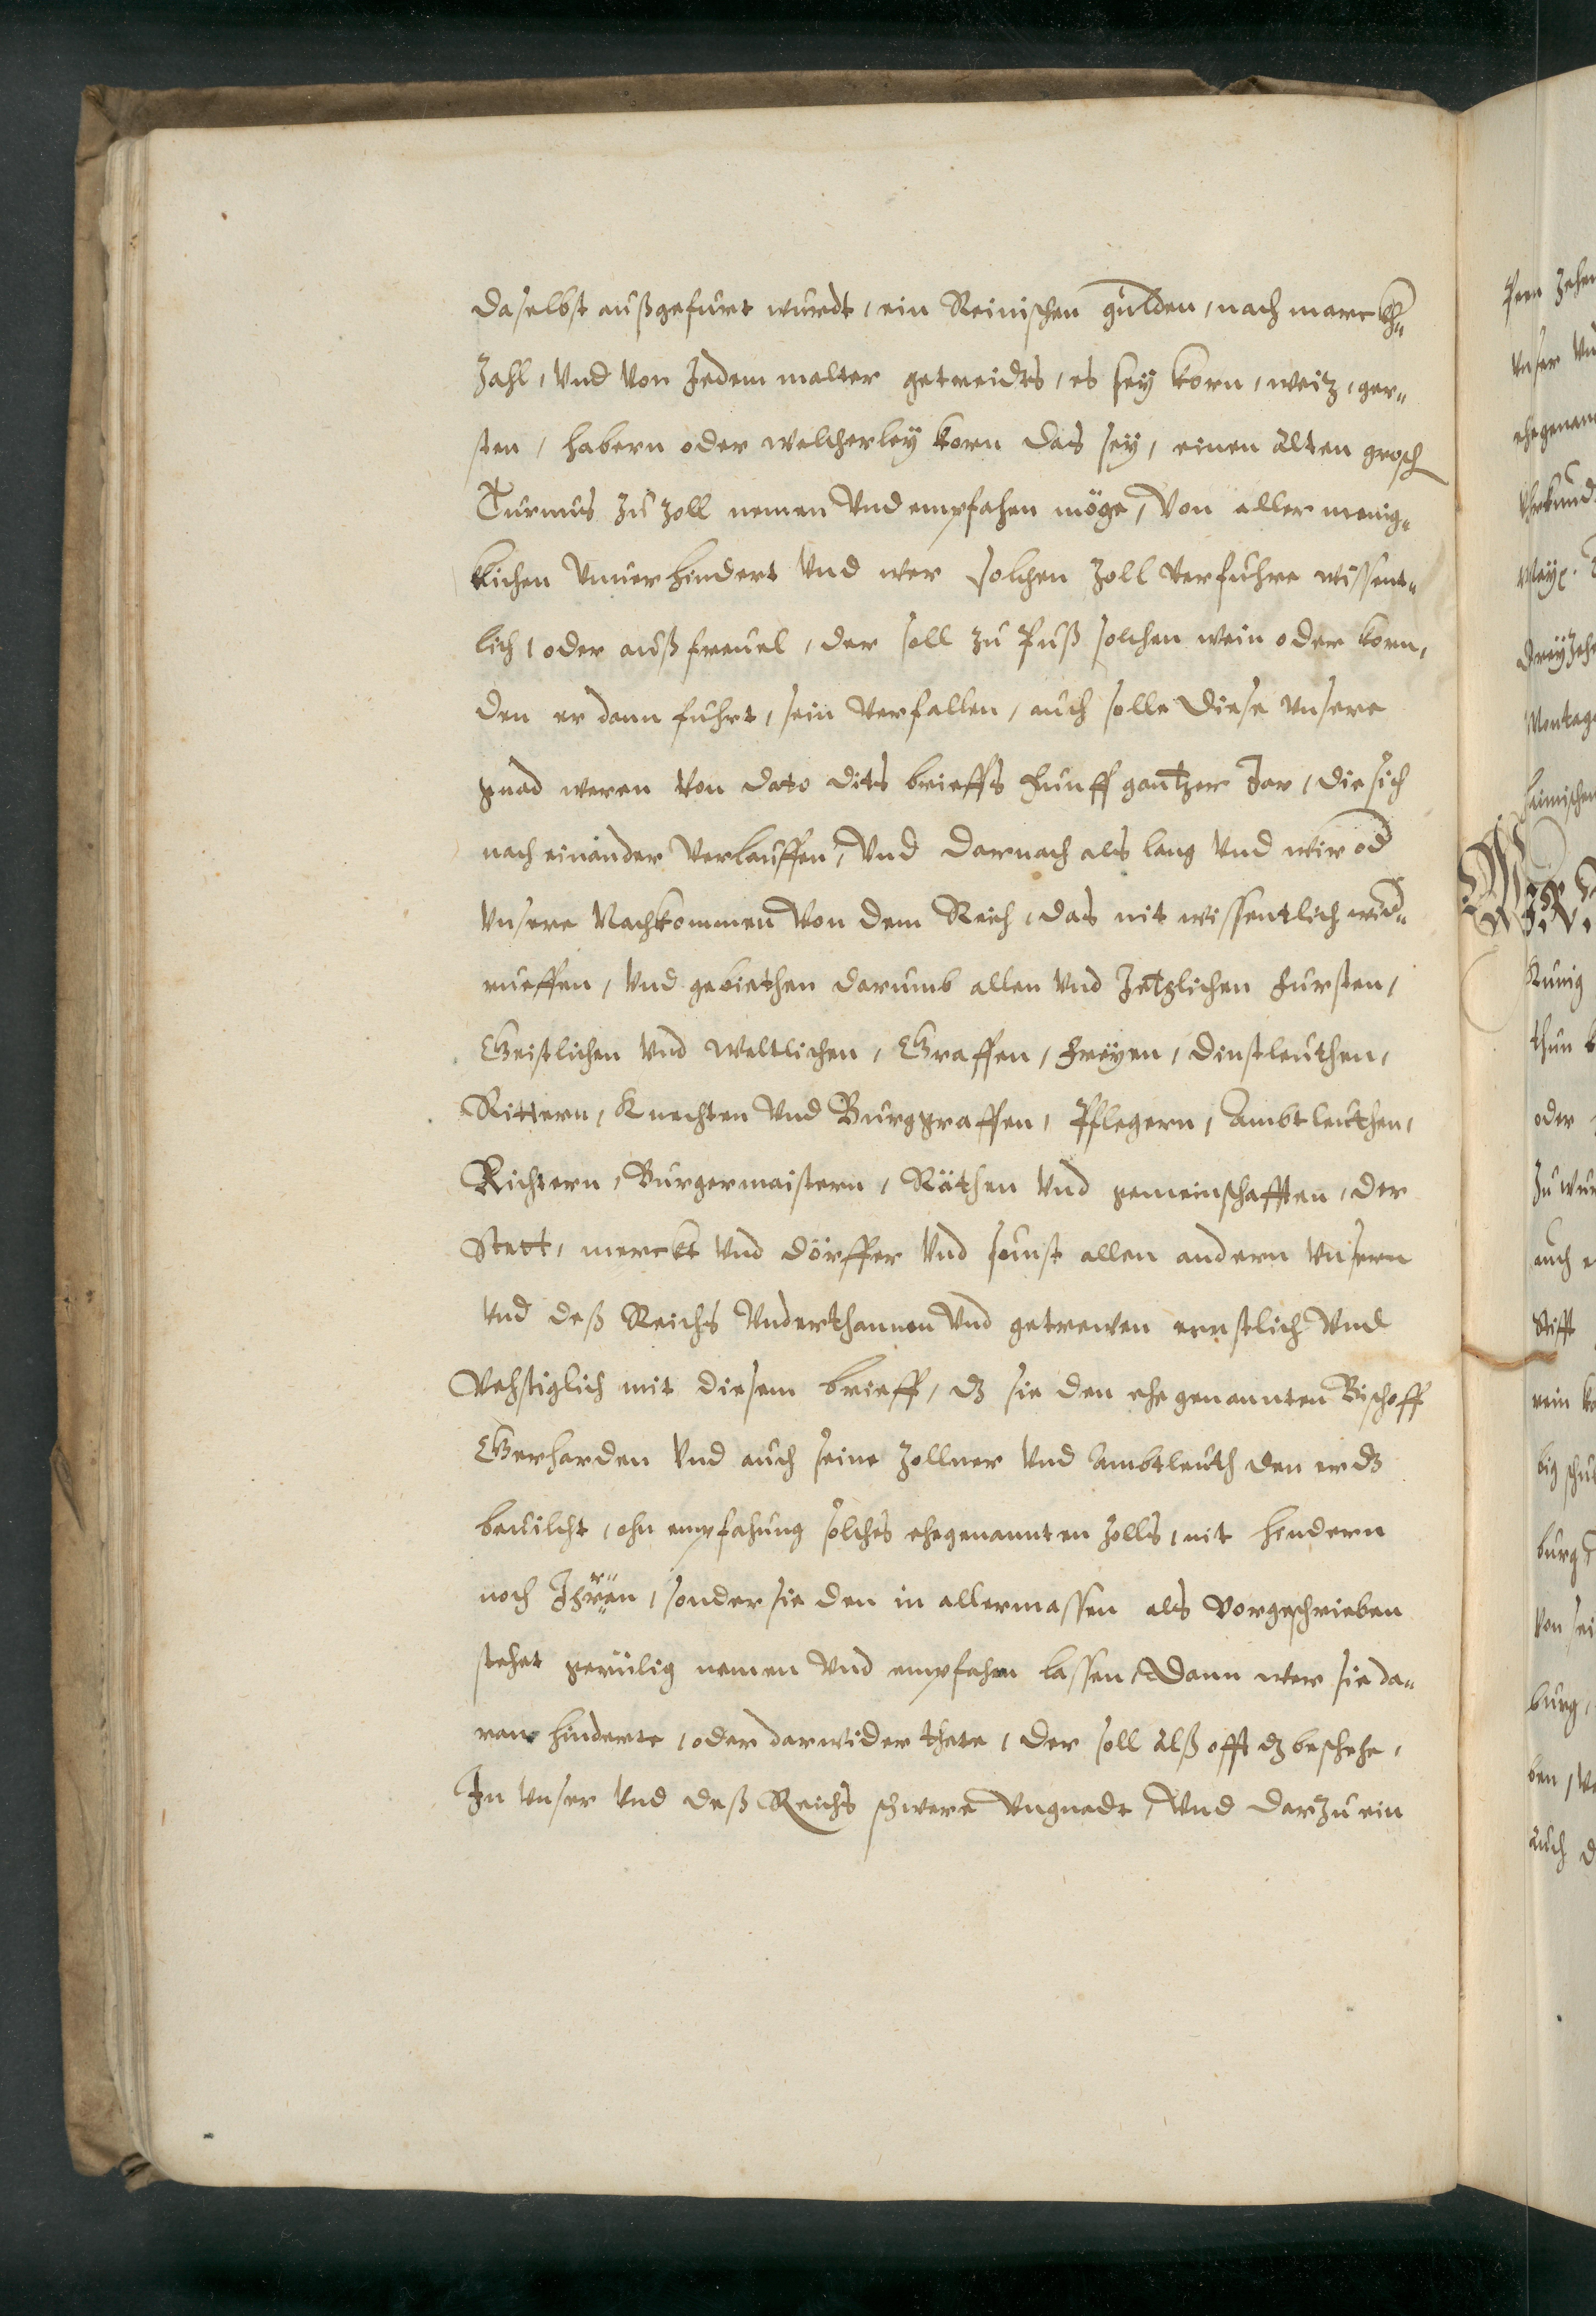 daselbst außgefurt wurdt, ein Reinischen gulden, nach marckh„
Zahl, Vnd Von Jedem malter getreidts, es sey korn, weitz, ger„
sten, habern oder welcherley korn das sey, einen alten grosch
Turnus zu zoll nemen Vnd empfahen möge, Von aller menig„
klichen Vnuerhindert Vnd wer solchen zoll Verfuhre wissent„
lich, oder auß freuel, der soll zu Puß solchen wein oder korn,
den er dann fuhrt, sein Verfallen, auch solle diese Vnsere
gnad weren Von dato dits brieffs Funff gantzer Jar, die sich
nach einander Verlauffen, Vnd darnach als lang Vnd wir od
Vnsere Nachkommen Von dem Reich, das nit wissentlich wid„
rueffen, Vnd gebiethen darumb allen Vnd Jetzlichen Fursten,
Geistlichen Vnd Weltlichen, Graffen, Freyen, Dinstleuthen,
Rittern, Knechten Vnd Burggraffen, Pflegern, Ambtleuthen,
Richtern, Burgermaistern, Räthen Vnd gemeinschafften, der
Stett, merckt Vnd dörffer Vnd sunst allen andern Vnsern
Vnd deß Reichs Vnderthannen Vnd getrewen ernstlich Vnd
Vehstiglich mit diesem brieff, dz sie den ehegenannten Bischoff
Gerharden Vnd auch seine Zollner Vnd Ambtleuth den er dz
beuilcht, ohn empfahung solches ehegenannten Zolls, nit hindern
noch Jhren, sonder sie den in allermassen als Vorgeschrieben
stehet gerülig nemen Vnd empfahen lassen, Dann wer sie da„
ran hinderte, oder darwider thete, der soll alß offt dz beschehe,
In Vnser Vnd deß Reichs schwere Vngnadt, Vnd darzu ein